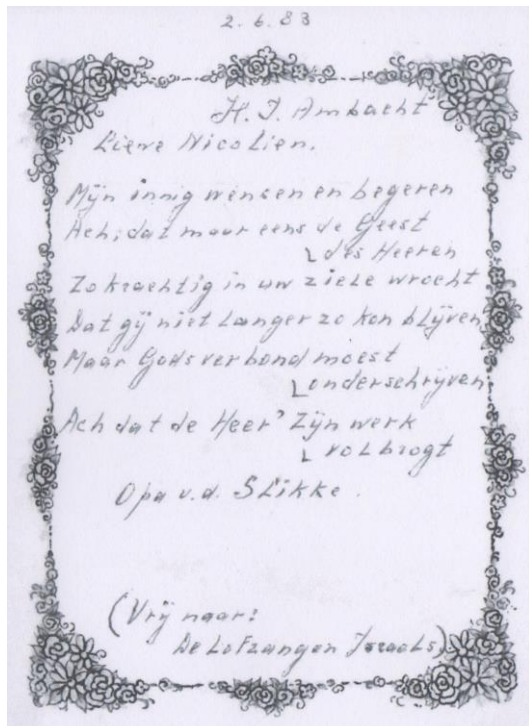 2.6.83
H. I. Ambacht
Lieve Nicolien.
Mijn innig wensen en begeren
Ach, dat maar eens de Geest
des Heeren
Zo krachtig in uw ziele wrocht
Dat gij niet langer zo kon blijven
Maar Gods verbond moest
onderschrijven
Ach dat de Heer' Zijn werk
volbrogt
Opa v.d. Slikke.
(Vrij naar:
De Lofzangen Israels)